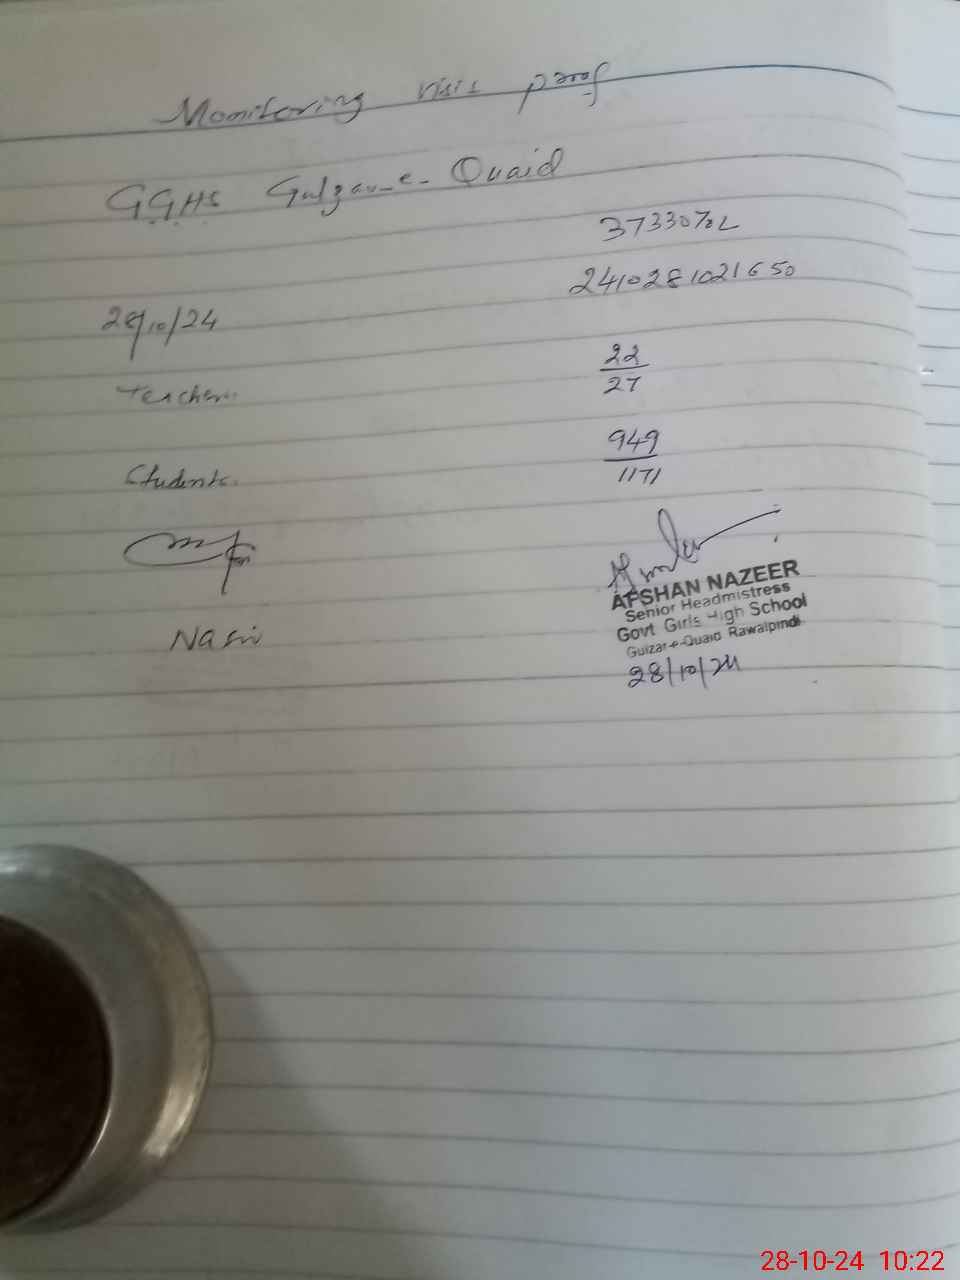 Monitoring visit proof
GGHS Gulzar-e-Quaid
37330702
2410281021650
28/10/24
Teachers. 22/27
Students. 949/1171
Nasir
AFSHAN NAZEER
Senior Headmistress
Govt Girls High School
Gulzar-e-Quaid Rawalpindi
28/10/24
28-10-24 10:22